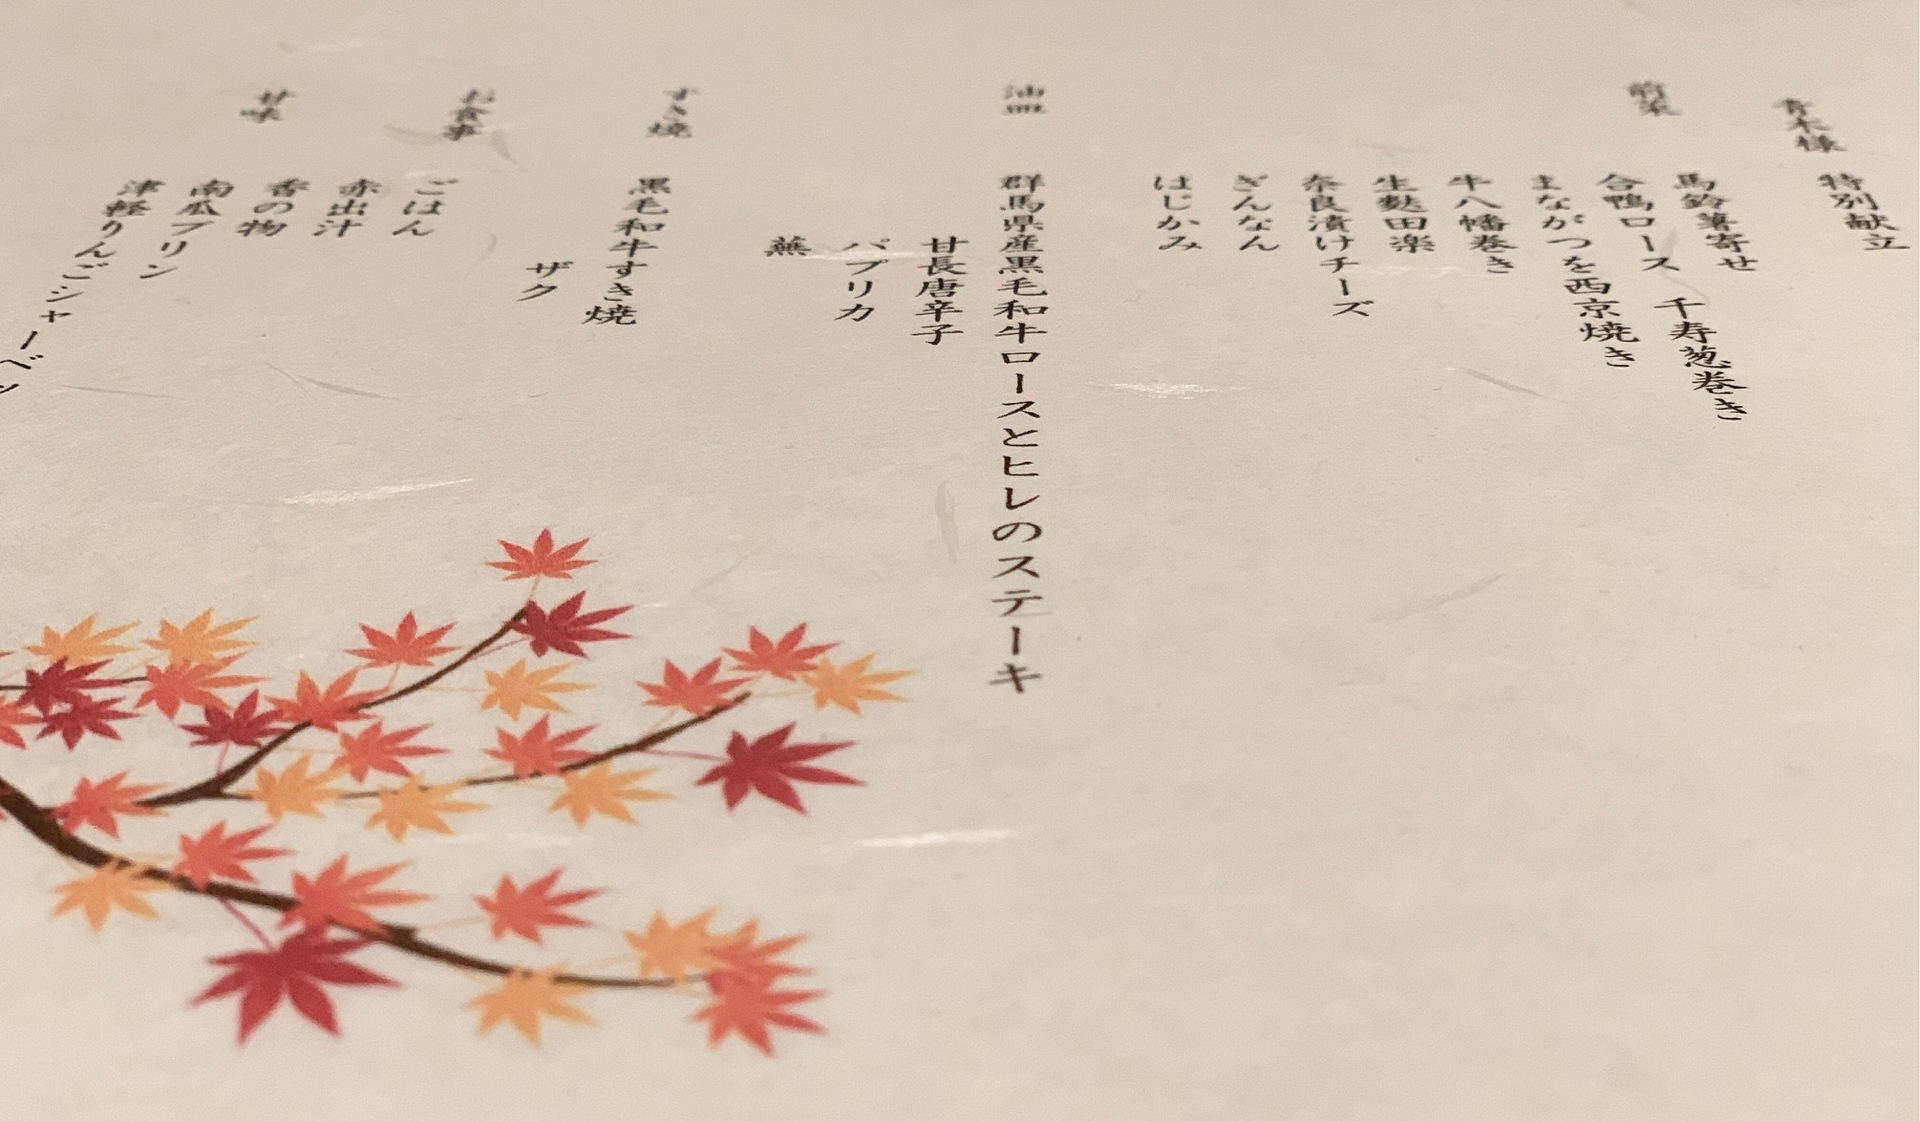 青木様
特別献立
前菜
馬鈴薯寄せ
合鴨ロース 千寿葱巻き
まながつを西京焼き
牛八幡巻き
生麩田楽
奈良漬けチーズ
ぎんなん
はじかみ
油皿
群馬県産黒毛和牛ロースとヒレのステーキ
甘長唐辛子
パプリカ
蕪
すき焼
黒毛和牛すき焼
ザク
お食事
ごはん
赤出汁
香の物
甘味
南瓜プリン
津軽りんごシャーベッ